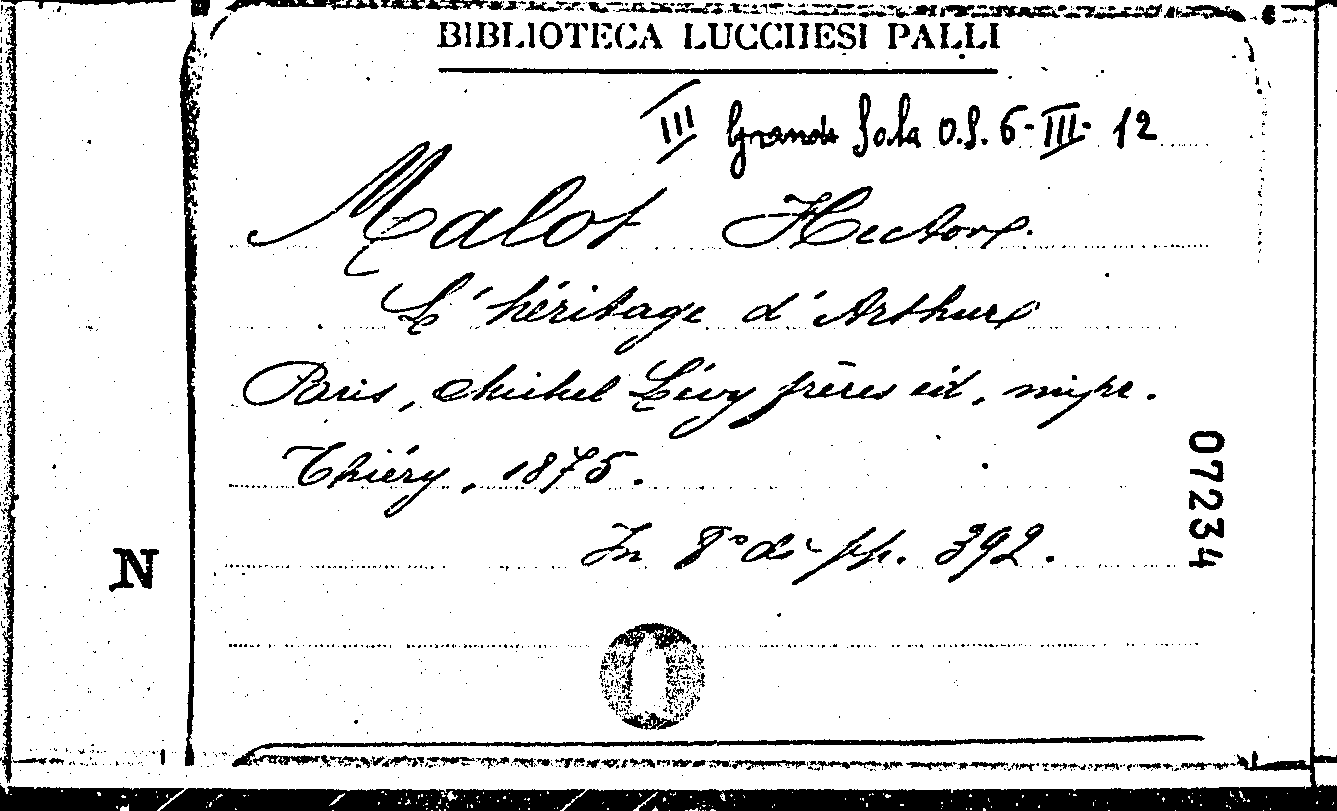 BIBLIOTECA LUCCHESI PALLI
III Grande Sala O.S. 6-III-12
Malot Hector.
L'héritage d'Arthur
Paris, Michel Lévy frères éd., impr.
Thiéry, 1875.
In 8° di pp. 392.
07234
N